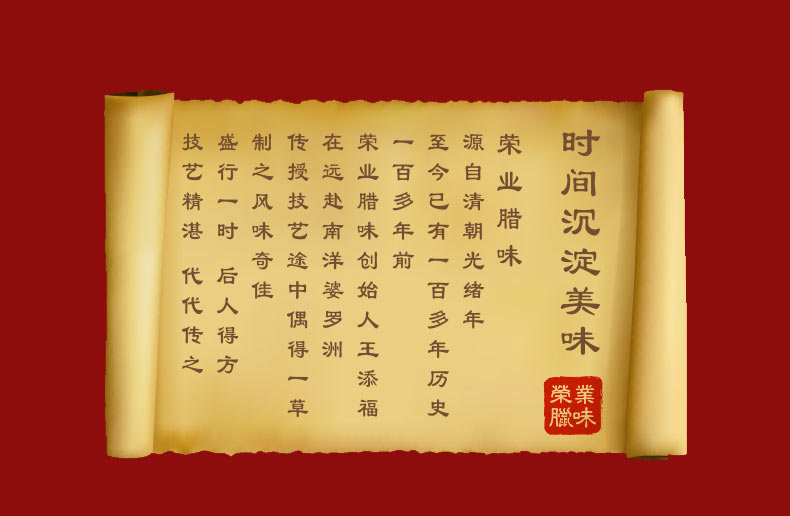 时间沉淀美味
榮業
臘味
荣业腊味
源自清朝光绪年
至今已有一百多年历史
一百多年前
荣业腊味创始人王添福
在远赴南洋婆罗洲
传授技艺途中偶得一草
制之风味奇佳
盛行一时 后人得方
技艺精湛 代代传之